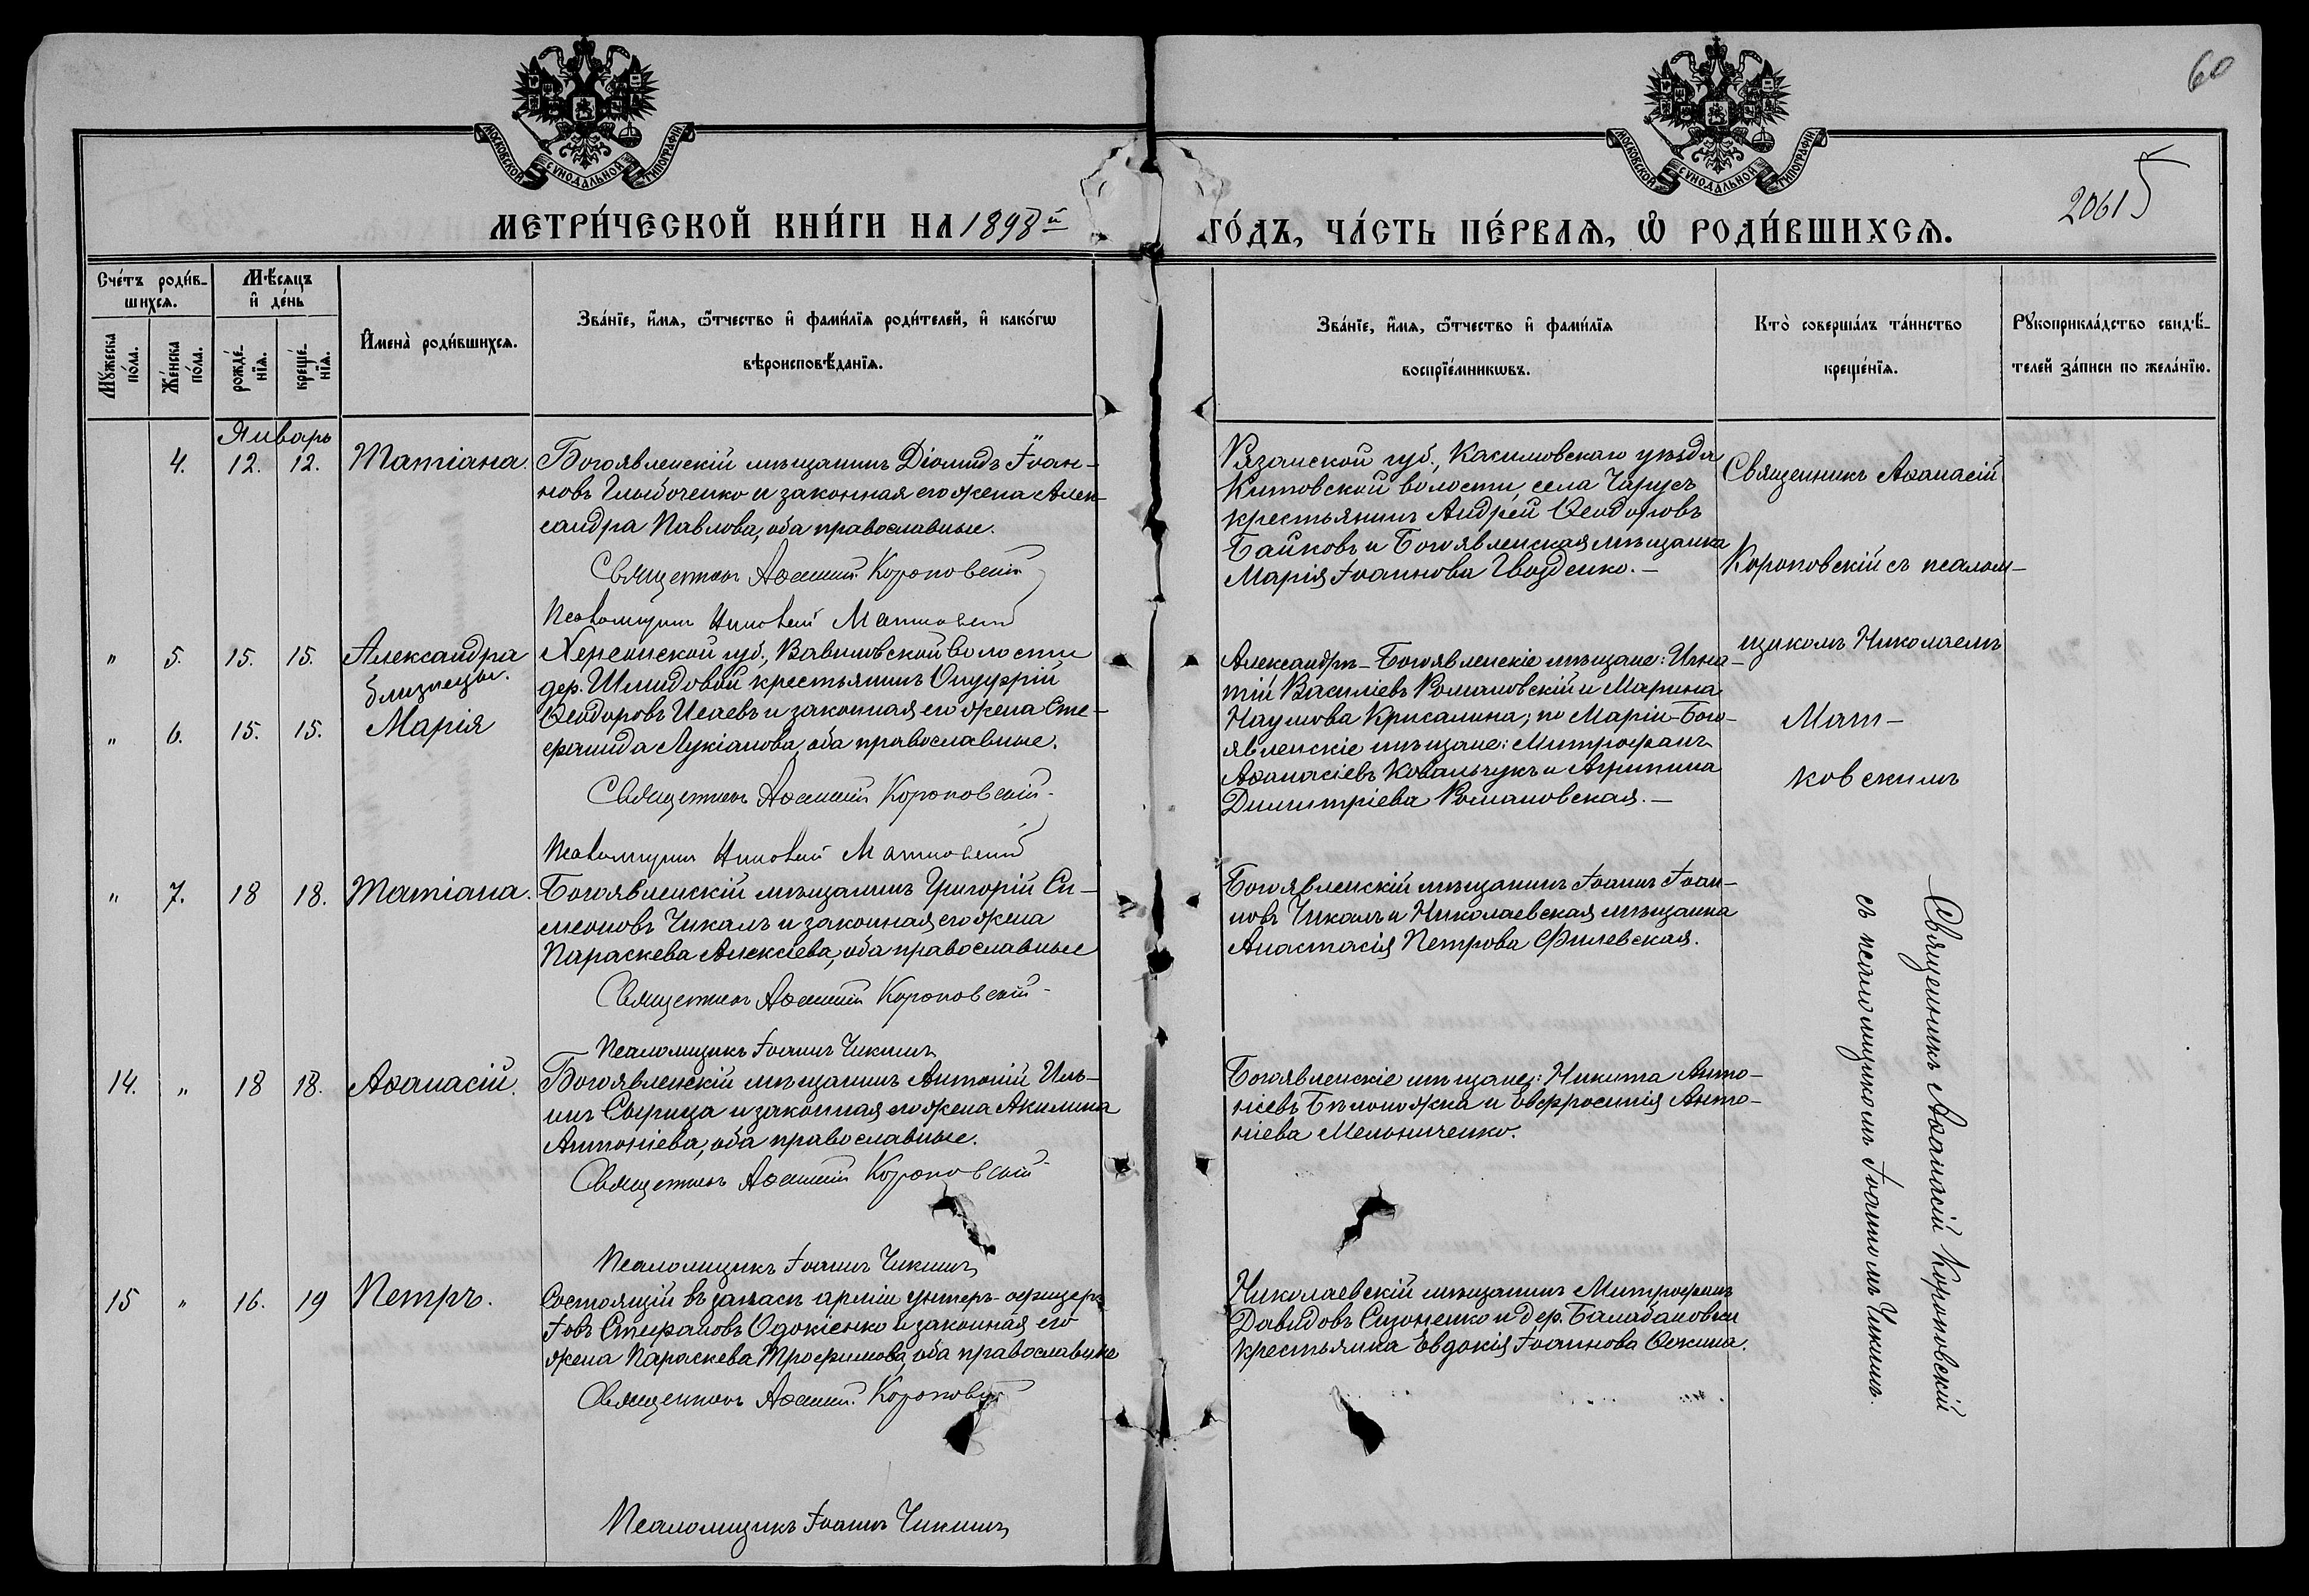 60
МОСКОВСКОЙ СУНОДАЛЬНОЙ ТИПОГРАФІИ
МОСКОВСКОЙ СУНОДАЛЬНОЙ ТИПОГРАФІИ
2061 5
МЕТРИ́ЧЕСКОЙ КНИ́ГИ НА 1898й
ГО́ДЪ, ЧА́СТЬ ПЕ́РВАѦ, Ѡ҆ РОДИ́ВШИХСѦ.
Сче́тъ роди́в-
шихсѧ.
Мꙋ́жеска по́ла.
Же́нска по́ла.
Мѣ́сѧцъ
и҆ де́нь
рожде́-нїѧ.
креще́-нїѧ.
И҆мена̀ роди́вшихсѧ.
Зва́нїе, и҆́мѧ, ѻ҆́тчество и҆ фами́лїѧ роди́телей, и҆ како́гѡ
вѣроисповѣ́данїѧ.
Зва́нїе, и҆́мѧ, ѻ҆́тчество и҆ фами́лїѧ
воспрїе́мникѡвъ.
Кто̀ соверша́лъ та́инство
креще́нїѧ.
Рꙋкоприкла́дство свидѣ́-
телей за́писи по жела́нїю.
Январь
4. 12. 12. Татіана.
Богоявленскій мѣщанинъ Діомидъ Іоан-
новъ Глыбоченко и законная его жена Алек-
сандра Павлова, оба православные.
Священникъ Аѳанасій Короповскій
Псаломщикъ Николай Матковскій
Рязанской губ., Касимовскаго уѣзда
Китовской волости, села Чарусъ
крестьянинъ Андрей Ѳеодоровъ
Байковъ и Богоявленская мѣщанка
Марія Іоаннова Гвозденко.—
Священникъ Аѳанасій
Короповскій съ псалом-
щикомъ Николаемъ
Мат-
ковскимъ
" 5. 15. 15. Александра
близнецы.
" 6. 15. 15. Марія
Херсонской губ., Вавиловской волости
дер. Шмидовой крестьянинъ Онуфрій
Ѳеодоровъ Исаевъ и законная его жена Сте-
фанида Лукіанова, оба православные.
Священникъ Аѳанасій Короповскій
Псаломщикъ Николай Матковскій
Александры-Богоявленскіе мѣщане: Игна-
тій Василіевъ Романовскій и Марина
Наумова Крисалина; по Маріи-Бого-
явленскіе мѣщане: Митрофанъ
Аѳанасіевъ Ковальчукъ и Агрипина
Димитріева Романовская.—
" 7. 18 18. Татіана.
Богоявленскій мѣщанинъ Григорій Си-
меоновъ Чикалъ и законная его жена
Параскева Алексіева, оба православные
Священникъ Аѳанасій Короповскій
Псаломщикъ Іоаннъ Чикинъ
Богоявленскій мѣщанинъ Іоаннъ Іоан-
новъ Чикалъ и Николаевская мѣщанка
Анастасія Петрова Филевская.
Священникъ Аѳанасій Короповскій
съ псаломщикомъ Іоанномъ Чикинъ.
14. " 18 18. Аѳанасій.
Богоявленскій мѣщанинъ Антоній Иль-
инъ Сырица и законная его жена Акилина
Антоніева, оба православные.
Священникъ Аѳанасій Короповскій
Псаломщикъ Іоаннъ Чикинъ
Богоявленскіе мѣщане: Никита Анто-
ніевъ Бѣлоножка и Евфросинія Анто-
ніева Мельниченко.
15 " 16. 19 Петръ.
Состоящій въ запасѣ арміи унтеръ-офицеръ
Іовъ Стефановъ Одокіенко и законная его
жена Параскева Трофимова, оба православные
Священникъ Аѳанасій Короповскій
Псаломщикъ Іоаннъ Чикинъ
Николаевскій мѣщанинъ Митрофанъ
Давидовъ Сизоненко и дер. Балабановки
крестьянка Евдокія Іоаннова